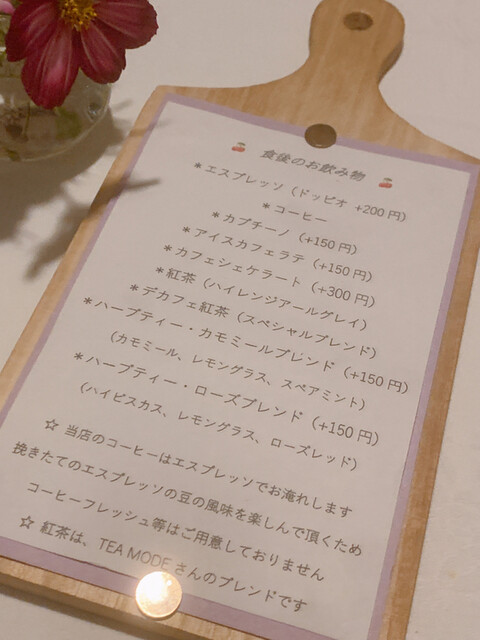 食後のお飲み物
*エスプレッソ (ドッピオ +200円)
*コーヒー
*カプチーノ (+150円)
*アイスカフェラテ (+150円)
*カフェシェケラート (+300円)
*紅茶 (ハイレンジアールグレイ)
*デカフェ紅茶 (スペシャルブレンド)
*ハーブティー・カモミールブレンド (+150円)
(カモミール、レモングラス、スペアミント)
*ハーブティー・ローズブレンド (+150円)
(ハイビスカス、レモングラス、ローズレッド)
☆ 当店のコーヒーはエスプレッソでお淹れします
挽きたてのエスプレッソの豆の風味を楽しんで頂くため
コーヒーフレッシュ等はご用意しておりません
☆ 紅茶は、TEA MODEさんのブレンドです